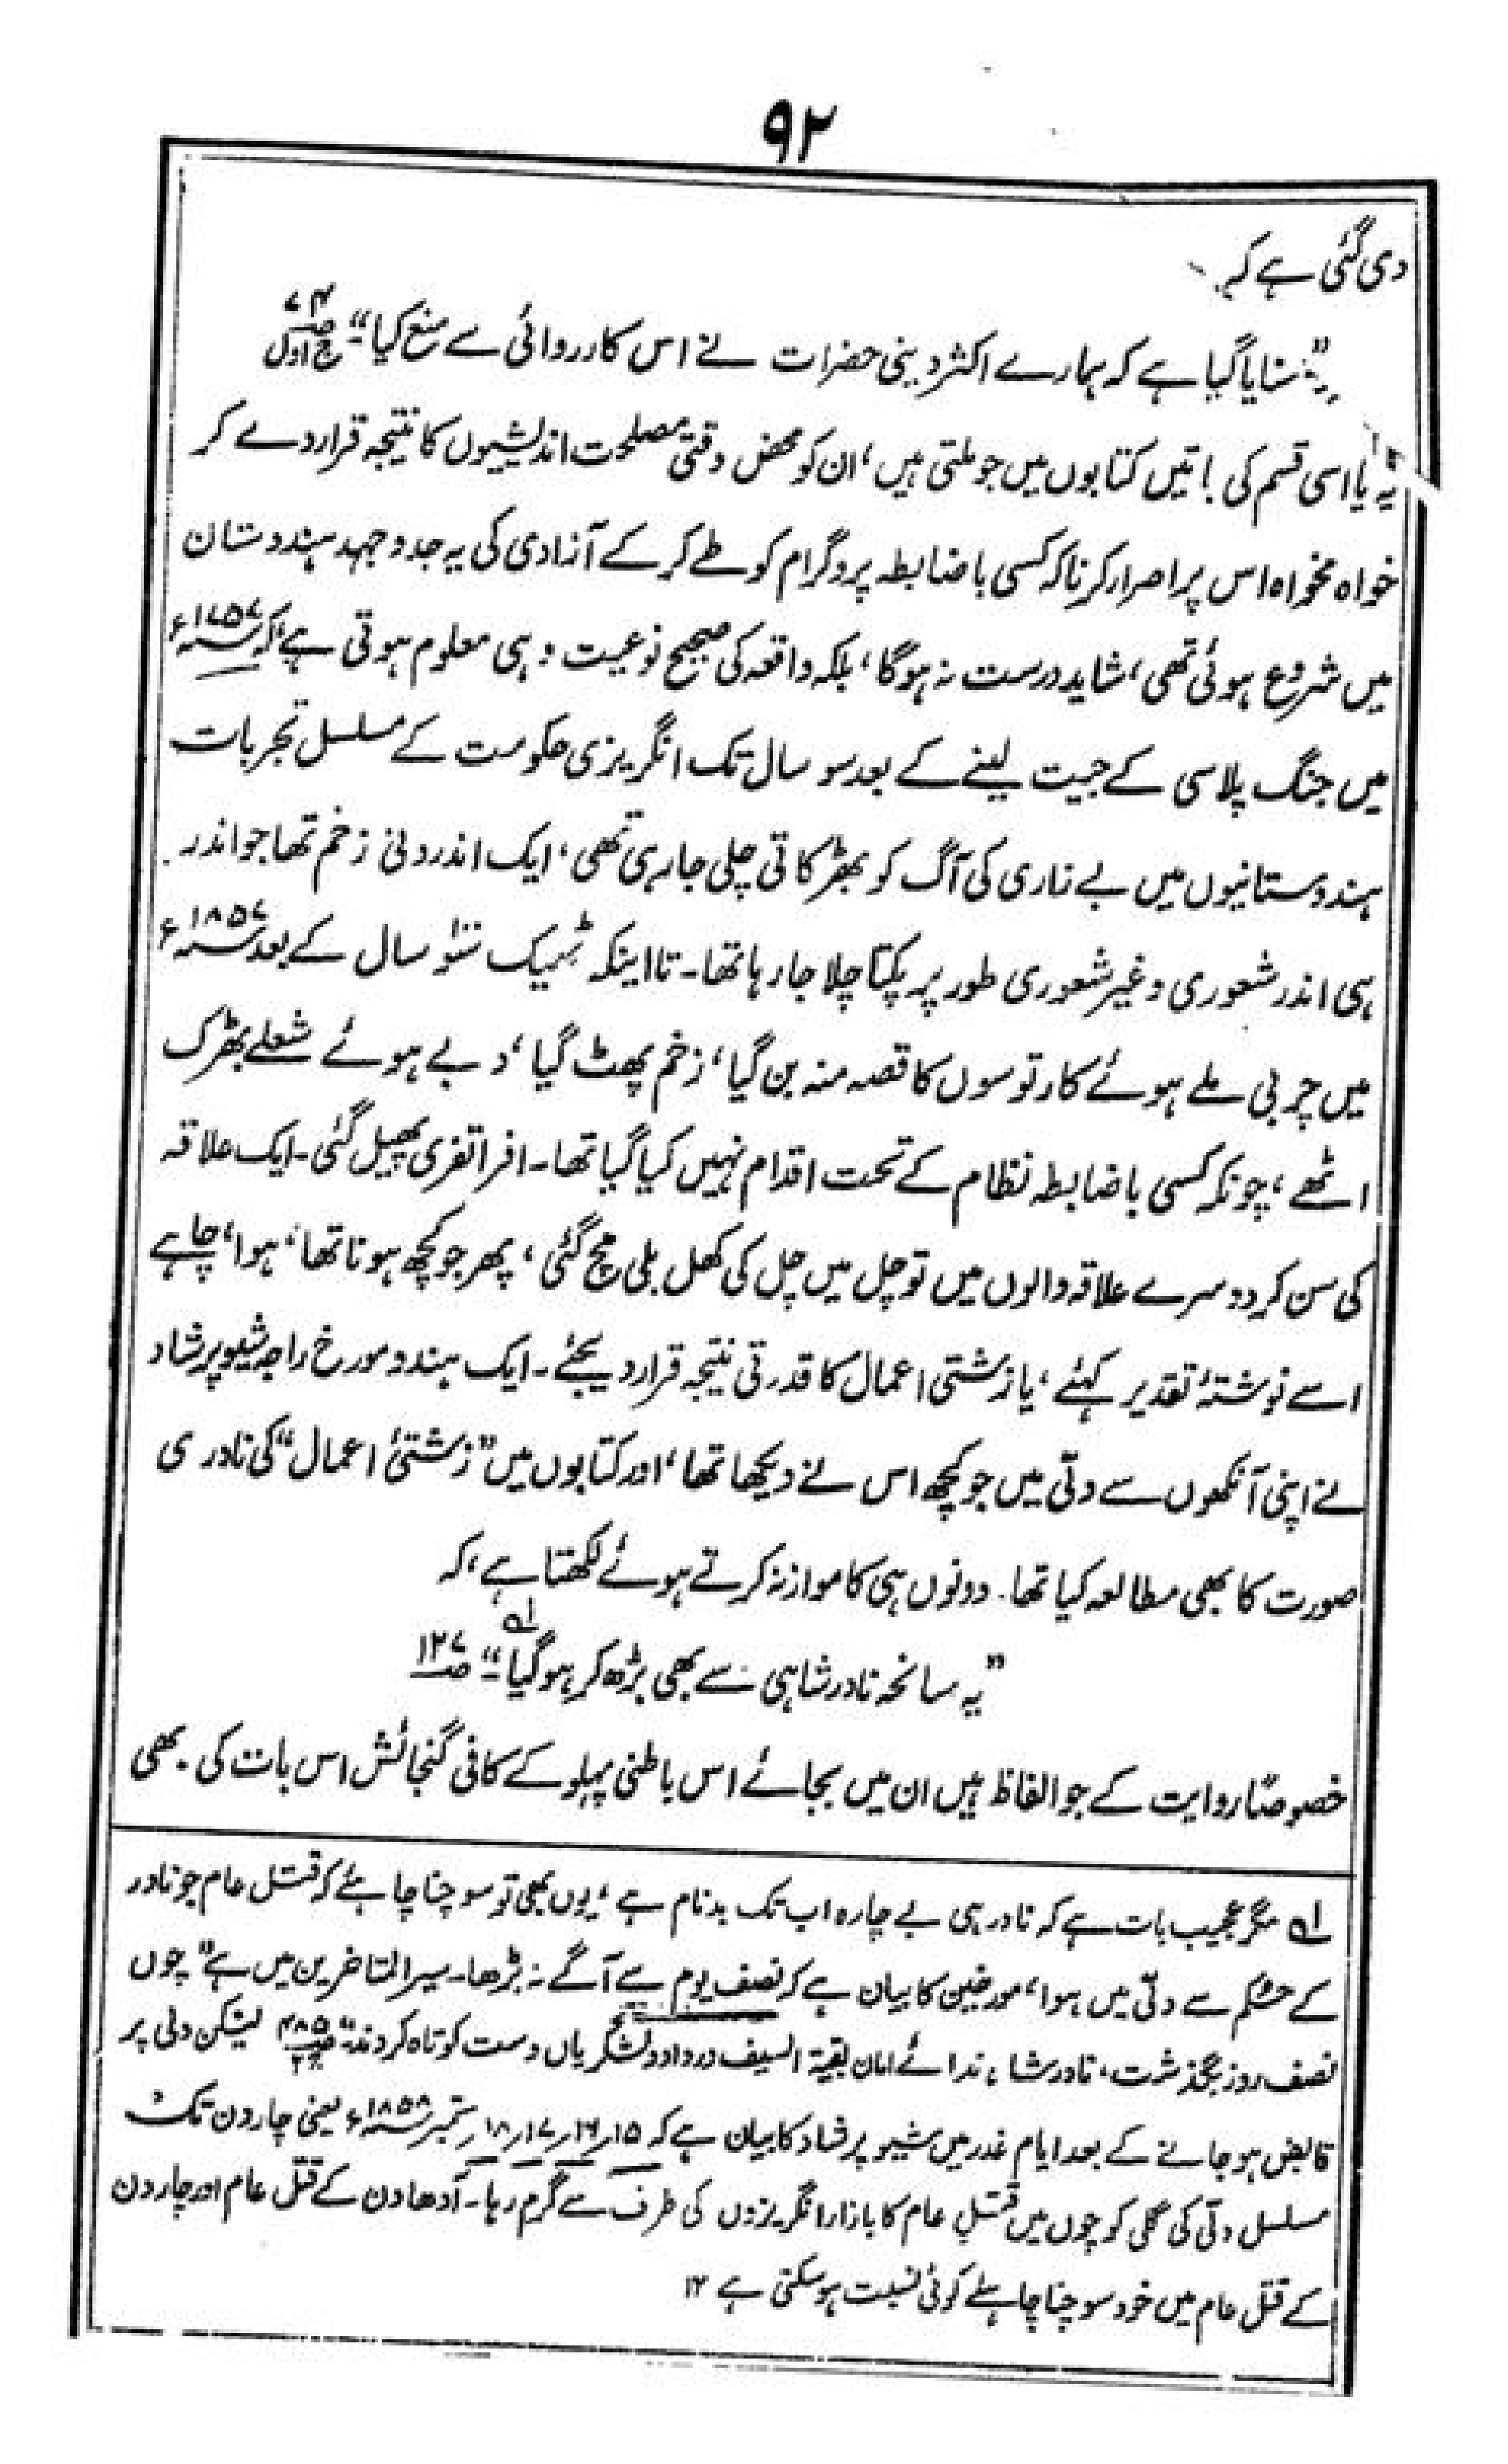 ۹۲
دی گئی ہے کہ
"سنایا گیا ہے کہ ہمارے اکثر دینی حضرات نے اس کارروائی سے منع کیا"۔ ص۷۴ ج اول
یہ یا اسی قسم کی باتیں کتابوں میں جو ملتی ہیں، ان کو محض وقتی مصلحت اندیشیوں کا نتیجہ قرار دے کر
خواہ مخواہ اس پر اصرار کرنا کہ کسی باضابطہ پروگرام کو طے کر کے آزادی کی یہ جدوجہد ہندوستان
میں شروع ہوئی تھی، شاید درست نہ ہوگا، بلکہ واقعہ کی صحیح نوعیت وہی معلوم ہوتی ہے، کہ ۱۷۵۷ء
میں جنگ پلاسی کے جیت لینے کے بعد سو سال تک انگریزی حکومت کے مسلسل تجربات
ہندوستانیوں میں بے زاری کی آگ کو بھڑکاتی چلی جا رہی تھی، ایک اندرونی زخم تھا جو اندر
ہی اندر شعوری و غیر شعوری طور پر پکتا چلا جا رہا تھا۔ تا اینکہ ٹھیک سو سال کے بعد ۱۸۵۷ء
میں چربی ملے ہوئے کارتوسوں کا قصہ منہ بن گیا، زخم پھٹ گیا، دبے ہوئے شعلے بھڑک
اٹھے، چونکہ کسی باضابطہ نظام کے تحت اقدام نہیں کیا گیا تھا۔ افراتفری پھیل گئی۔ ایک علاقہ
کی سن کر دوسرے علاقہ والوں میں تو چل میں چل کی کھل بلی مچ گئی، پھر جو کچھ ہونا تھا، ہوا، چاہے
اسے نوشتۂ تقدیر کہئے، یا زشتی اعمال کا قدرتی نتیجہ قرار دیجئے۔ ایک ہندو مورخ راجہ شیو پرشاد
نے اپنی آنکھوں سے دلّی میں جو کچھ اس نے دیکھا تھا، اور کتابوں میں "زشتیٔ اعمال" کی نادری
صورت کا بھی مطالعہ کیا تھا۔ دونوں ہی کا موازنہ کرتے ہوئے لکھتا ہے، کہ
"یہ سانحہ نادرشاہی سے بھی بڑھ کر ہوگیا"۔ ؂۱ ص۱۲۷
خصوصًا روایت کے جو الفاظ ہیں ان میں بجائے اس باطنی پہلو کے کافی گنجائش اس بات کی بھی
؂۱ مگر عجیب بات ہے کہ نادر ہی بے چارہ اب تک بدنام ہے، یوں بھی تو سوچنا چاہئے کہ قتل عام جو نادر
کے حکم سے دلّی میں ہوا، مورخین کا بیان ہے کہ نصف یوم سے آگے نہ بڑھا۔ سیر المتاخرین میں ہے "چوں
نصف روز بگذشت، نادر شاہ ندائے امان بقیۃ السیف در داد و لشکریاں دست کوتاہ کردند"۔ ص۴۸۵ ج۲ لیکن دلی پر
قابض ہو جانے کے بعد ایام غدر میں شیو پرشاد کا بیان ہے کہ ۱۵ر ۱۶ر ۱۷ر ۱۸ر ستمبر ۱۸۵۸ء یعنی چار دن تک
مسلسل دلّی کی گلی کوچوں میں قتلِ عام کا بازار انگریزوں کی طرف سے گرم رہا۔ آدھا دن کے قتل عام اور چار دن
کے قتل عام میں خود سوچنا چاہئے کوئی نسبت ہو سکتی ہے ۱۲